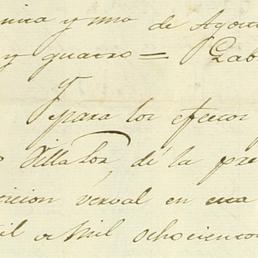 y uno de Agos
y quatro = Gab
y
para los efectos
Villalos de la pre
icion verval en
il ochocientos